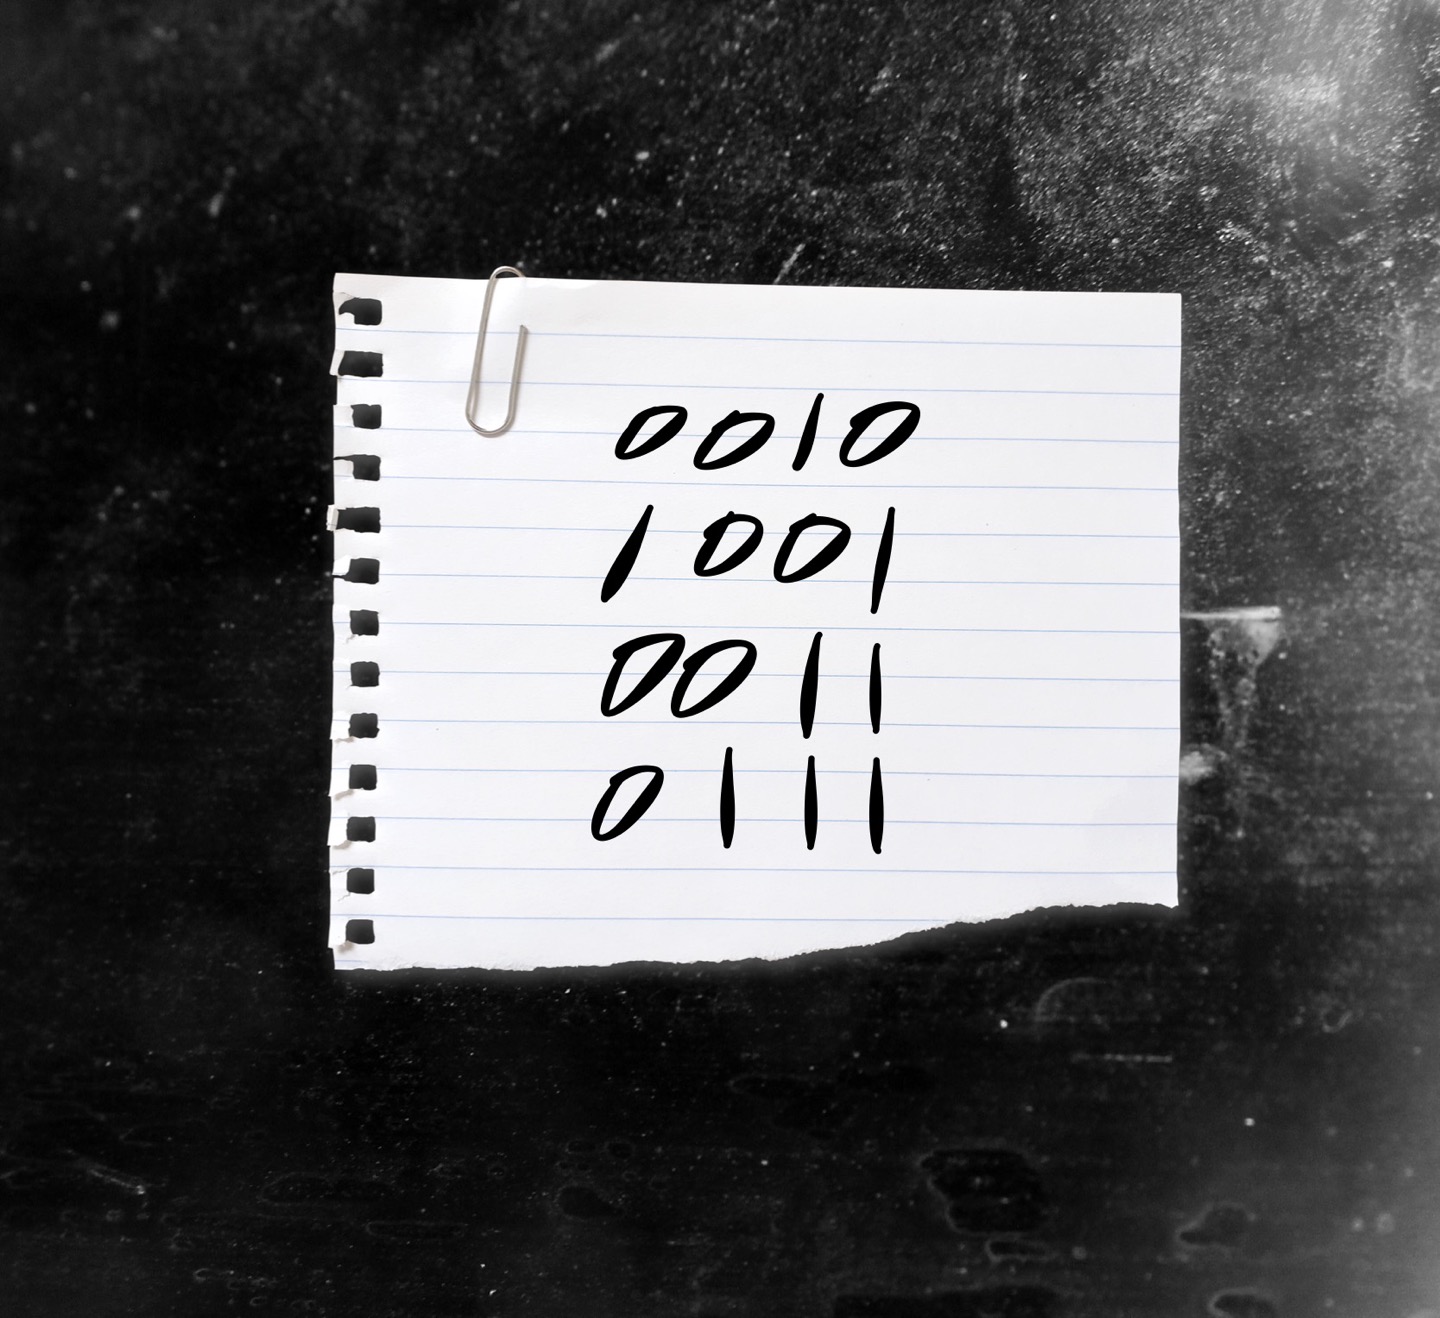 0010
1001
0011
0111